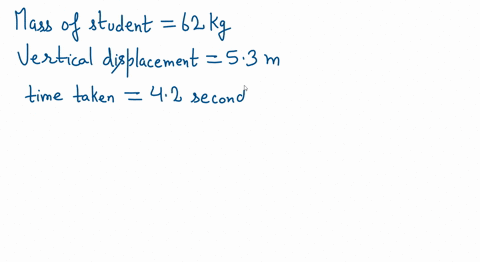 Mass of student = 62 kg
Vertical displacement = 5.3 m
time taken = 4.2 second